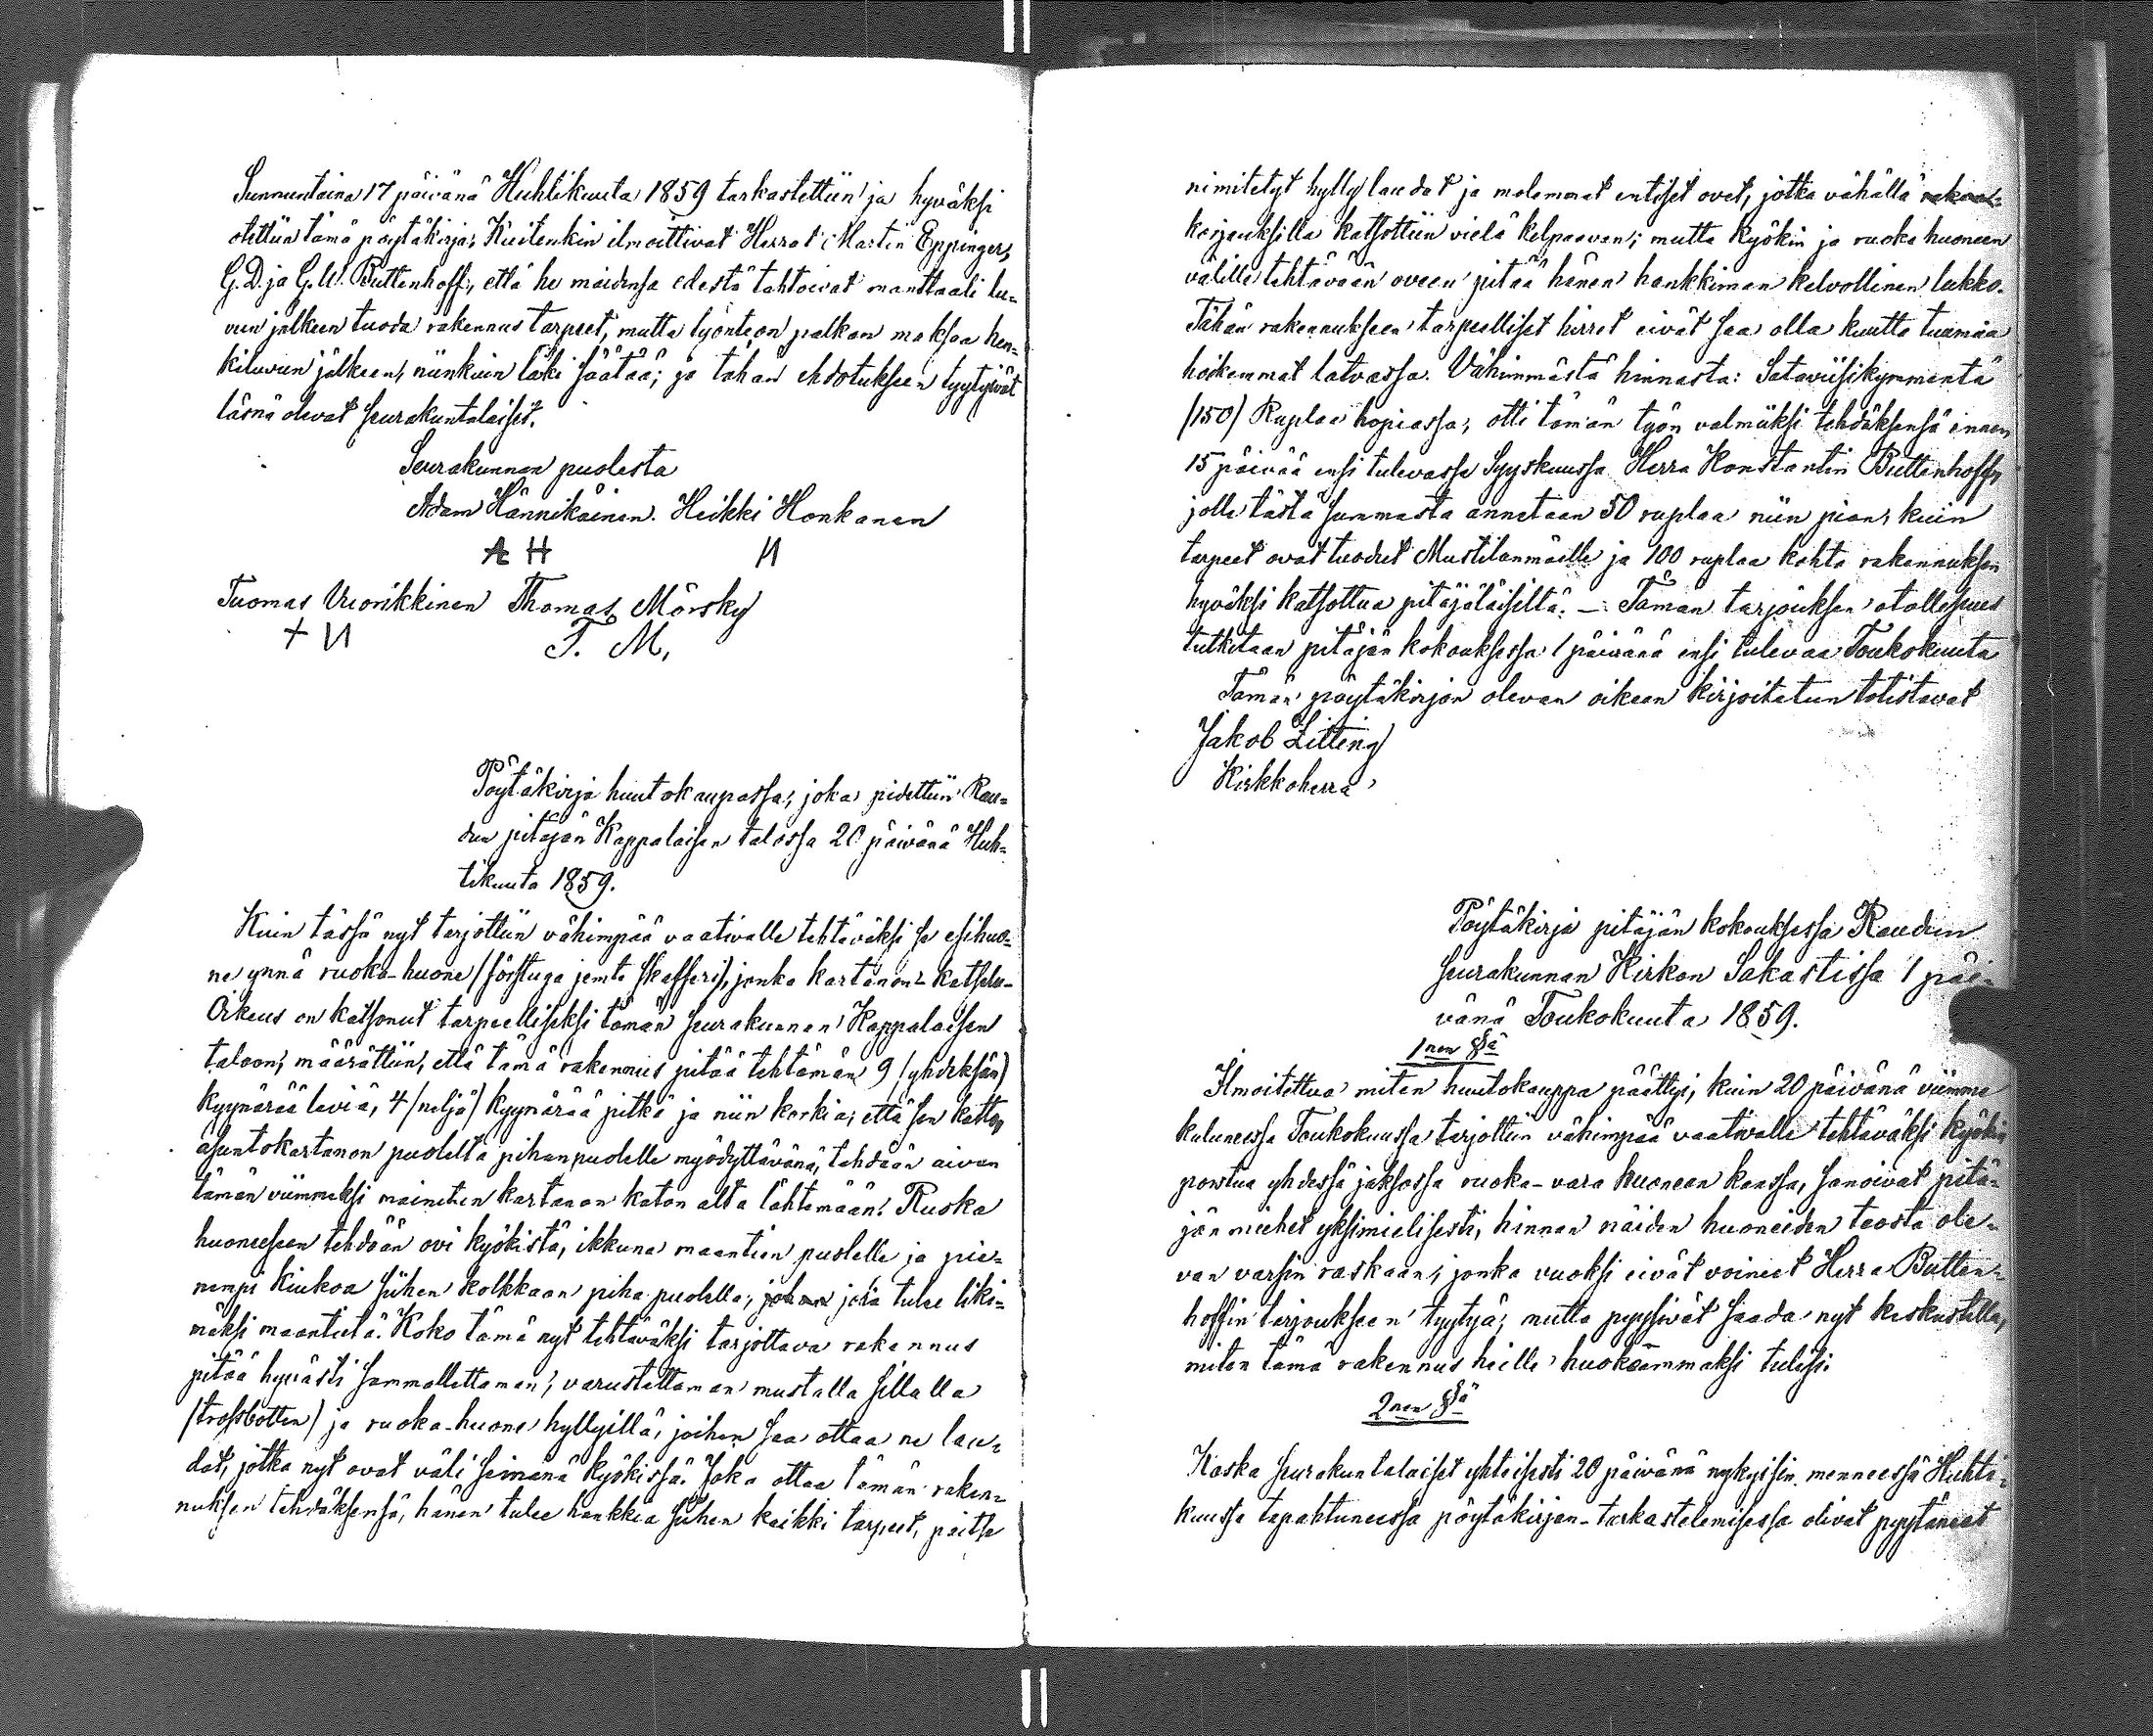 Sunnuntaina 17 päivänä Huhtikuuta 1859 tarkastettiin ja hyväksi
otettiin tämä pöytäkirja; Kuitenkin ilmoittivat Herrat Martin Eppinger,
G. D. ja G. W. Buttenhoff, että he maidensa edestä tahtoivat manttaali lu-
vun jälkeen tuoda rakennus tarpeet, mutta työnteon palkan maksaa hen-
kiluvun jälkeen, niinkuin laki säätää; ja tähän ehdotukseen tyytyivät
läsnä olevat seurakuntalaiset.
Seurakunnan puolesta
Adam Hännikäinen. Heikki Honkanen
A H
Tuomas Vuorikkinen Thomas Mörsky
T. M.
Pöytäkirja huutokaupassa, joka pidettiin Rau-
dun pitäjän Kappalaisen talossa 20 päivänä Huh-
tikuuta 1859.
Kuin tässä nyt tarjottiin vähimpää vaativalle tehtäväksi se esihuo-
ne ynnä ruoka-huone (förstuga jemte skafferi), jonka kartanon-katselu-
Oikeus on katsonut tarpeelliseksi tämän seurakunnan Kappalaisen
taloon; määrättiin, että tämä rakennus pitää tehtämän 9 (yhdeksän)
kyynärää leviä, 4 (neljä) kyynärää pitkä ja niin korkia, että sen katto,
asuntokartanon puolelta pihanpuolelle myödyttävänä, tehdään aivan
tämän viimmeksi mainitun kartanon katon alta lähtemään. Ruoka
huoneeseen tehdään ovi kyökistä, ikkuna maantien puolelle ja pie-
nempi kiukoa siihen kolkkaan piha puolella, johon joka tulee liki-
mäksi maantietä. Koko tämä nyt tehtäväksi tarjottava rakennus
pitää hyvästi sammallettaman, varustettaman mustalla sillalla
(trossbotten) ja ruoka-huone hyllyillä, joihen saa ottaa ne lau-
dat, jotka nyt ovat väli seinänä kyökissä. Joka ottaa tämän raken-
nuksen tehdäksensä, hänen tulee hankkia siihen kaikki tarpeet, paitse
nimitetyt hylly laudat ja molemmat entiset ovet, jotka vähällä
korjauksilla katsottiin vielä kelpaavan; mutta kyökin ja ruoka huoneen
välille tehtävään oveen pitää hänen hankkiman kelvollinen lukko.
Tähän rakennukseen tarpeelliset hirret eivät saa olla kuutta tuumaa
hoikemmat latvassa. Vähimmästä hinnasta: Sataviisikymmentä
(150) Ruplaa hopiassa, otti tämän työn valmiiksi tehdäksensä ennen
15 päivää ensi tulevassa Syyskuussa Herra Konstantin Buttenhoff,
jolle tästä summasta annetaan 50 ruplaa niin pian, kuin
tarpeet ovat tuodut Mustilanmäelle ja 100 ruplaa kohta rakennuksen
hyväksi katsottua pitäjäläisiltä. — Tämän tarjouksen otollisuus
tutkitaan pitäjän kokouksessa 1 päivänä ensi tulevaa Toukokuuta
Tämän pöytäkirjan olevan oikean kirjoitetun totistavat
Jakob Zitting
Kirkkoherra
Pöytäkirja pitäjän kokouksessa Raudun
seurakunnan Kirkon Sakastissa 1 päi-
vänä Toukokuuta 1859.
1nen §ä
Ilmoitettua miten huutokauppa päättyi, kuin 20 päivänä viimme
kuluneessa Toukokuussa tarjottiin vähimpää vaativalle tehtäväksi kyökin
porstua yhdessä jaksossa ruoka-vara huoneen kanssa, sanoivat pitä-
jän miehet yksimielisesti, hinnan näiden huoneiden teosta ole-
van varsin raskaan, jonka vuoksi eivät voineet Herra Butten-
hoffin tarjoukseen tyytyä; mutta pyysivät saada nyt keskustella,
miten tämä rakennus heille huokeammaksi tulisi.
2nen §ä
Koska seurakuntalaiset yhteisesti 20 päivänä nykyisin menneessä Huhti-
kuussa tapahtuneessa pöytäkirjan-tarkastelemisessa olivat pyytäneet